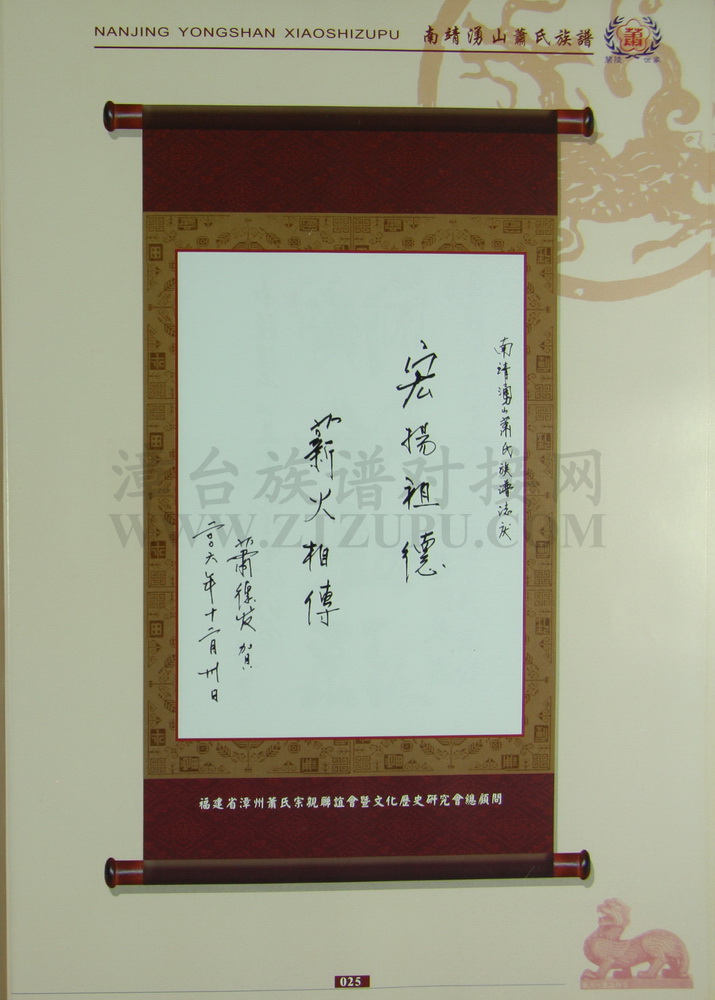 NANJING YONGSHAN XIAOSHIZUPU 南靖湧山蕭氏族譜
蘭陵 世家
南靖湧山蕭氏族譜誌慶
宏揚祖德
薪火相傳
蕭德發 賀
二〇〇六年十二月卅日
漳台族谱对接网
WWW.ZTZUPU.COM
福建省漳州蕭氏宗親聯誼會暨文化歷史研究會總顧問
025